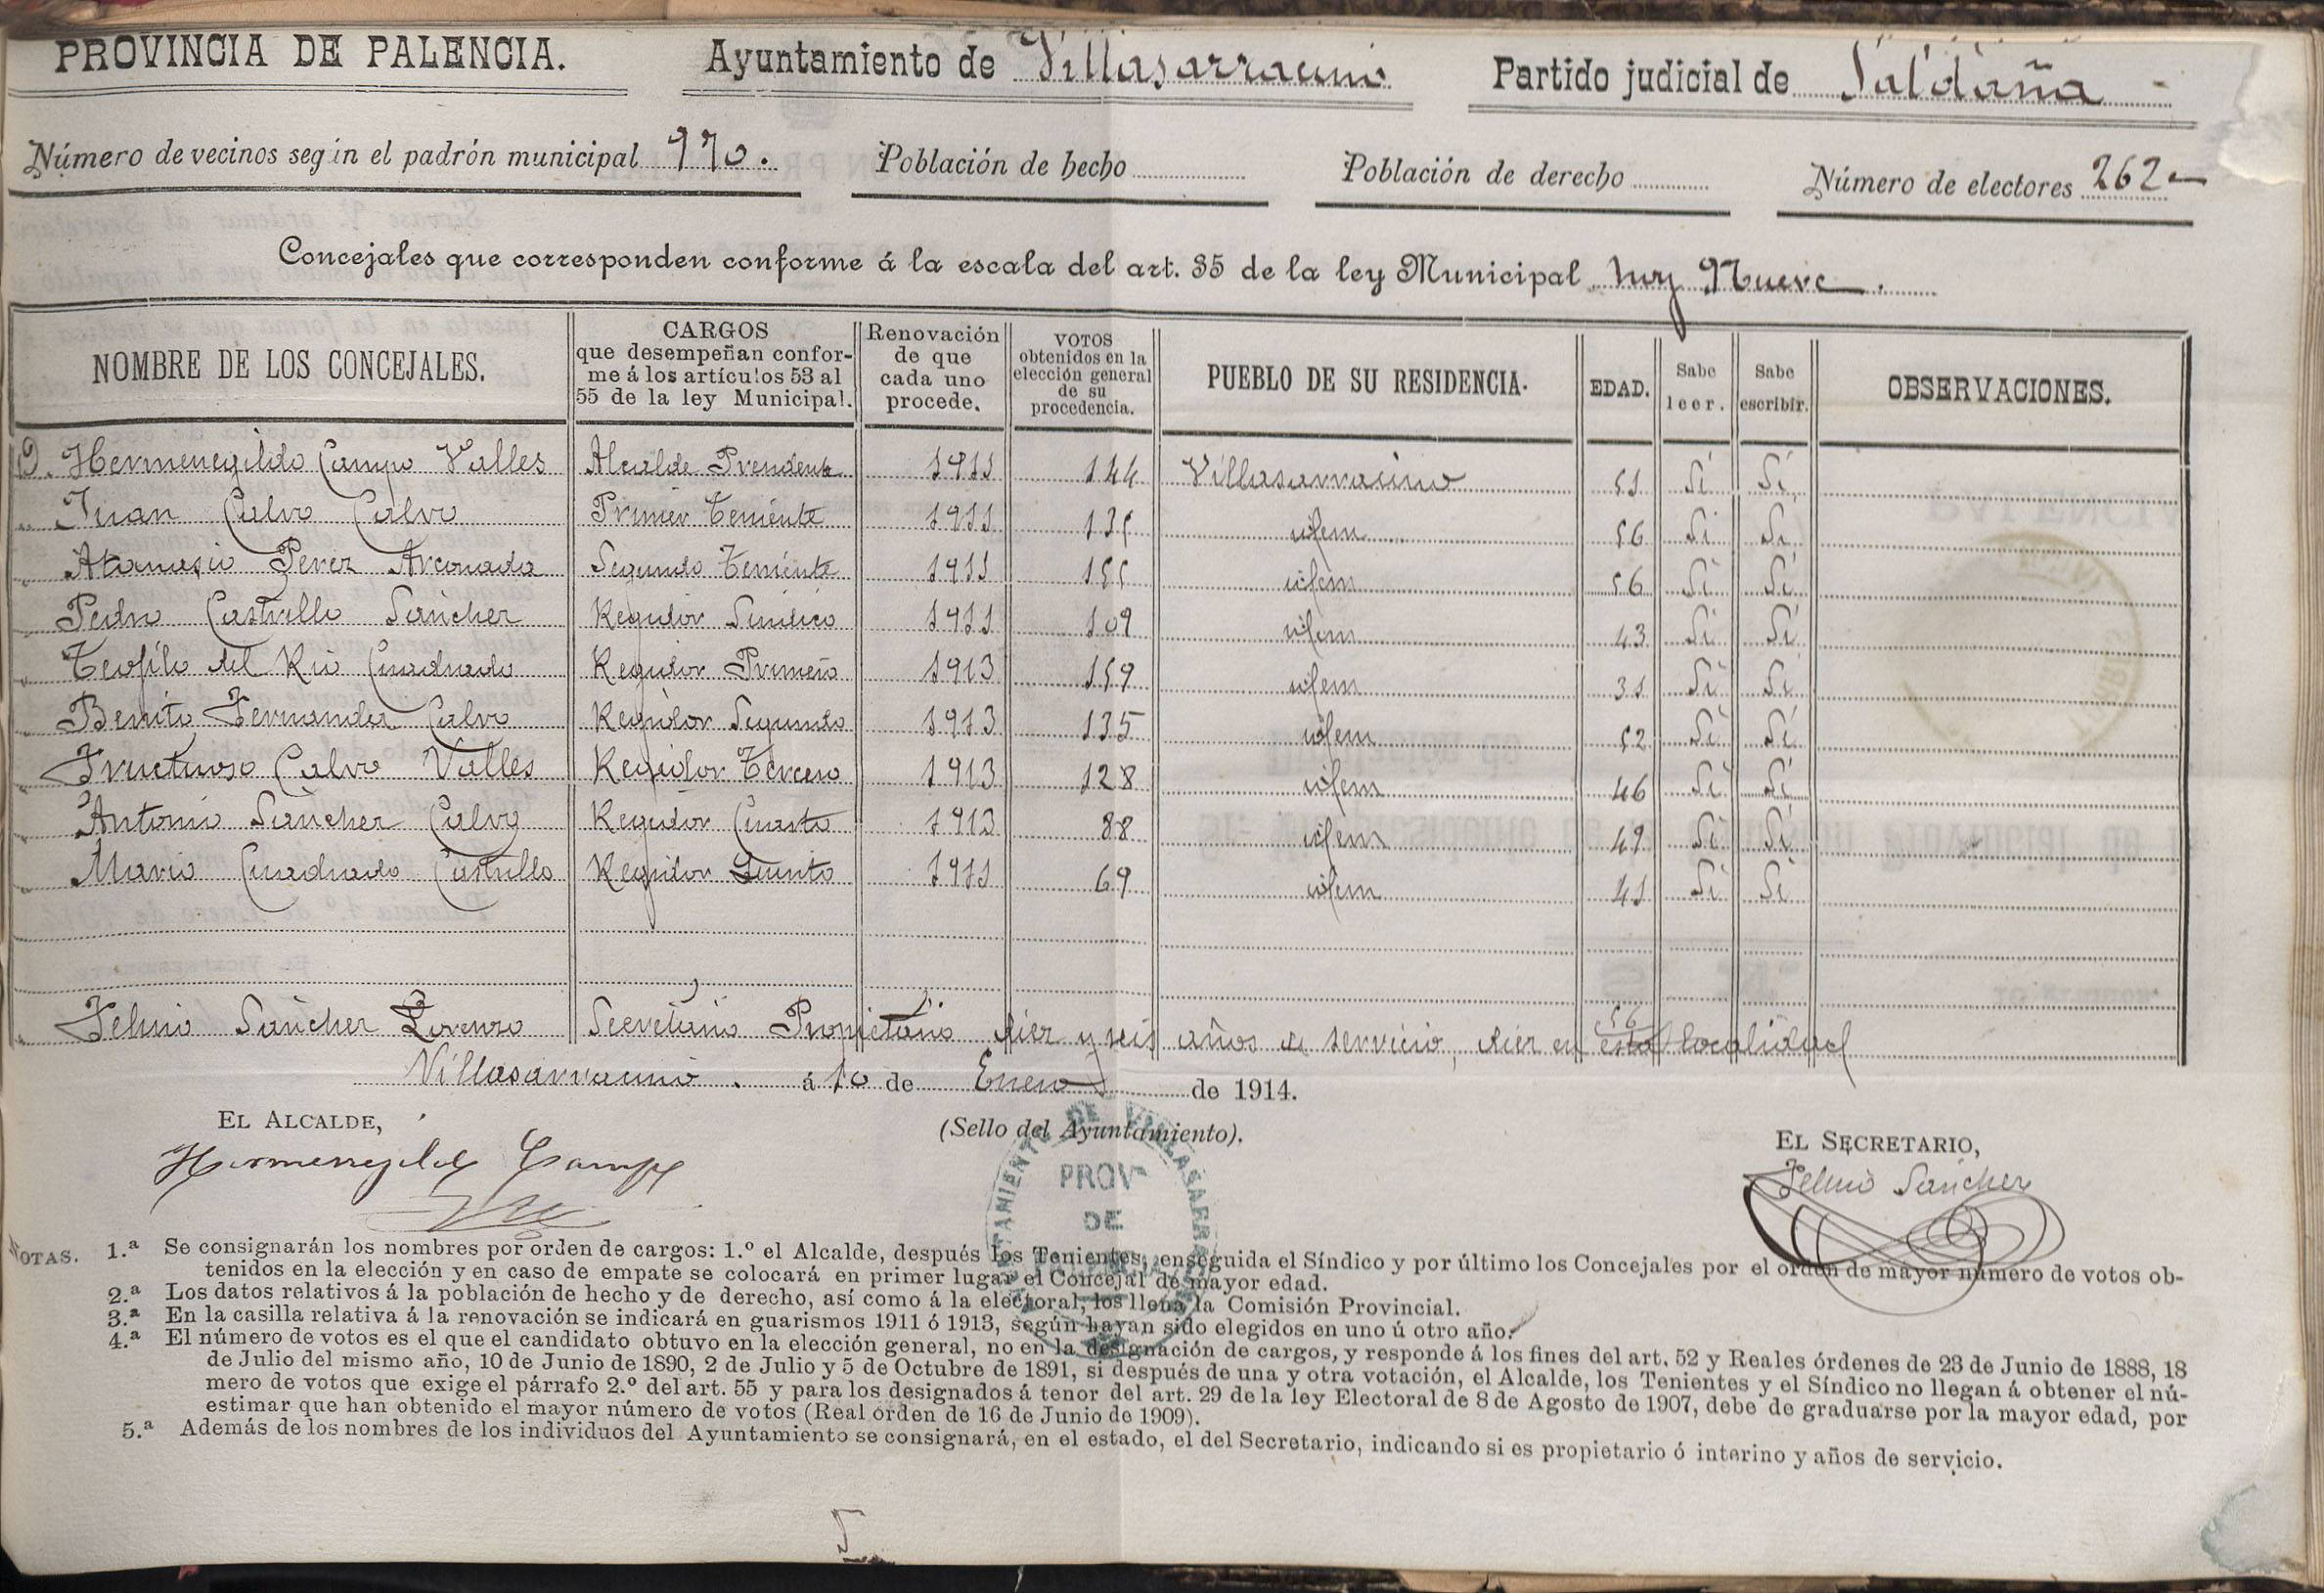 PROVINCIA DE PALENCIA. Ayuntamiento de Villasarracino Partido judicial de Saldaña
Número de vecinos según el padrón municipal 970. Población de hecho Población de derecho Número de electores 262
Concejales que corresponden conforme á la escala del art. 35 de la ley Municipal hoy Nueve.
NOMBRE DE LOS CONCEJALES. CARGOS que desempeñan conforme á los artículos 53 al 55 de la ley Municipal. Renovación de que cada uno procede. VOTOS obtenidos en la elección general de su procedencia. PUEBLO DE SU RESIDENCIA. EDAD. Sabe leer. Sabe escribir. OBSERVACIONES.
D. Hermenegildo Campo Valles Alcalde Presidente 1911 144 Villasarracino 51 Si Si
Juan Calvo Calvo Primer Teniente 1911 135 idem 56 Si Si
Atanasio Perez Arconada Segundo Teniente 1911 155 idem 56 Si Si
Pedro Castrillo Sancher Regidor Sindico 1911 109 idem 43 Si Si
Teofilo del Rio Cuadrado Regidor Primero 1913 159 idem 31 Si Si
Benito Fernandez Calvo Regidor Segundo 1913 135 idem 52 Si Si
Fructuoso Calvo Valles Regidor Tercero 1913 128 idem 46 Si Si
Antonio Sancher Calvo Regidor Cuarto 1913 88 idem 49 Si Si
Mario Cuadrado Castrillo Regidor Quinto 1911 69 idem 41 Si Si
56
Sancher Lorenzo Secretario Propietario dier y seis años de servicio, dier en esta localidad
Villasarracino. á 10 de Enero de 1914.
EL ALCALDE, (Sello del Ayuntamiento). EL SECRETARIO,
Hermenegildo Campo Sancher
AYUNTAMIENTO DE VILLASARRACINO
PROVª
DE
NOTAS. 1.ª Se consignarán los nombres por orden de cargos: 1.º el Alcalde, después los Tenientes, enseguida el Síndico y por último los Concejales por el orden de mayor número de votos ob-
tenidos en la elección y en caso de empate se colocará en primer lugar el Concejal de mayor edad.
2.ª Los datos relativos á la población de hecho y de derecho, así como á la electoral, los llena la Comisión Provincial.
3.ª En la casilla relativa á la renovación se indicará en guarismos 1911 ó 1913, según hayan sido elegidos en uno ú otro año.
4.ª El número de votos es el que el candidato obtuvo en la elección general, no en la designación de cargos, y responde á los fines del art. 52 y Reales órdenes de 23 de Junio de 1888, 18
de Julio del mismo año, 10 de Junio de 1890, 2 de Julio y 5 de Octubre de 1891, si después de una y otra votación, el Alcalde, los Tenientes y el Síndico no llegan á obtener el nú-
mero de votos que exige el párrafo 2.º del art. 55 y para los designados á tenor del art. 29 de la ley Electoral de 8 de Agosto de 1907, debe de graduarse por la mayor edad, por
estimar que han obtenido el mayor número de votos (Real orden de 16 de Junio de 1909).
5.ª Además de los nombres de los individuos del Ayuntamiento se consignará, en el estado, el del Secretario, indicando si es propietario ó interino y años de servicio.